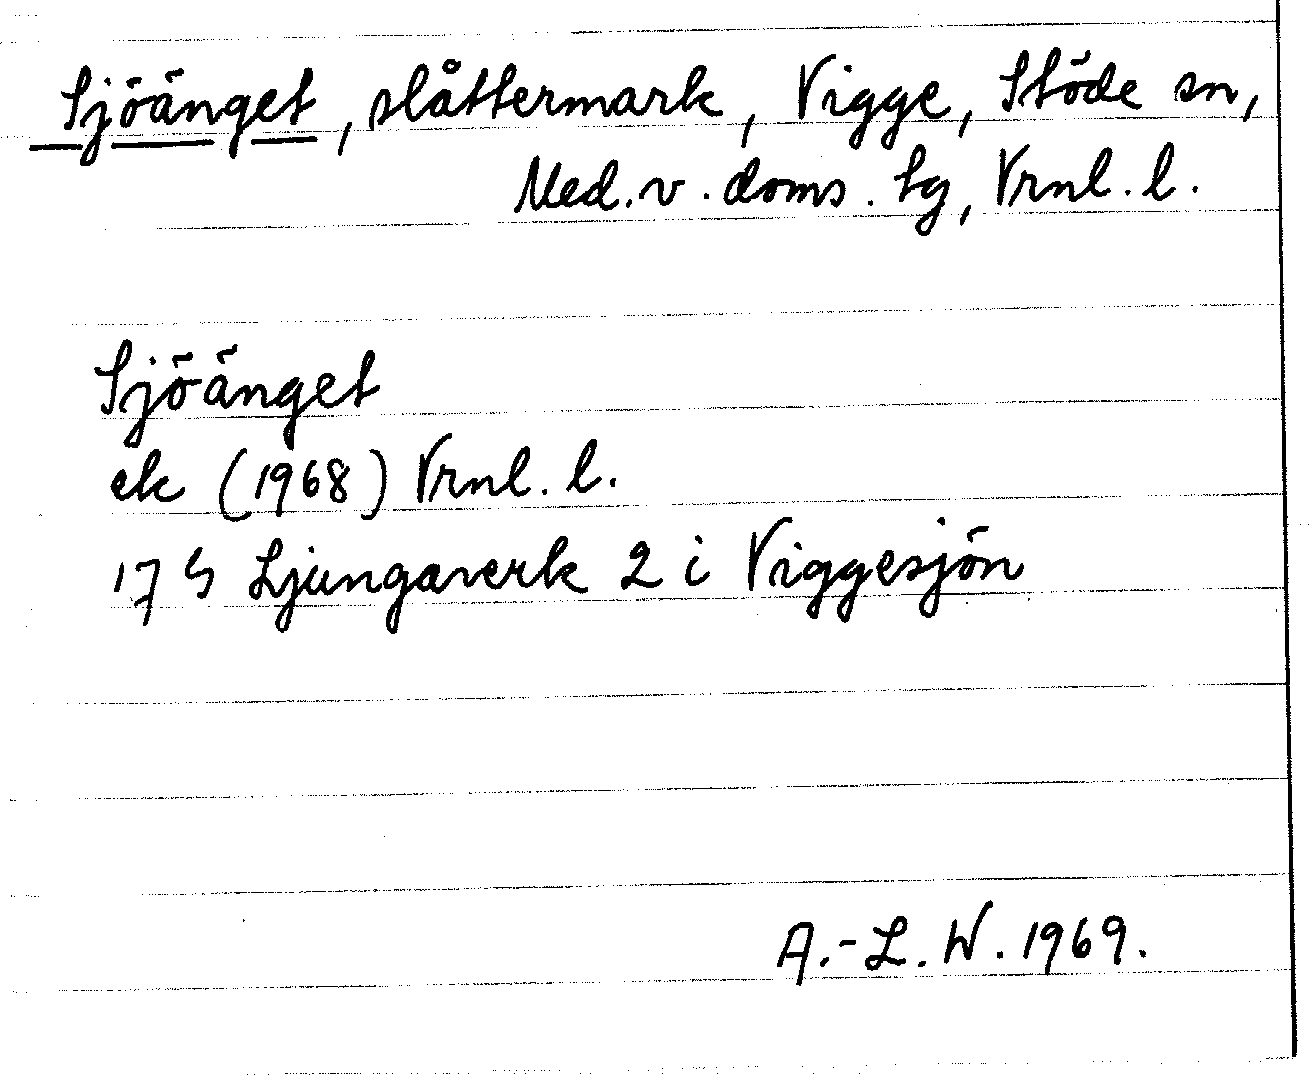 Sjöänget, slåttermark, Vigge, Stöde sn,
Med. v. doms. tg, Vrnl. l.
Sjöänget
ek (1968) Vrnl. l.
17 G Ljungaverk 2 i Viggesjön
A.-L. W. 1969.